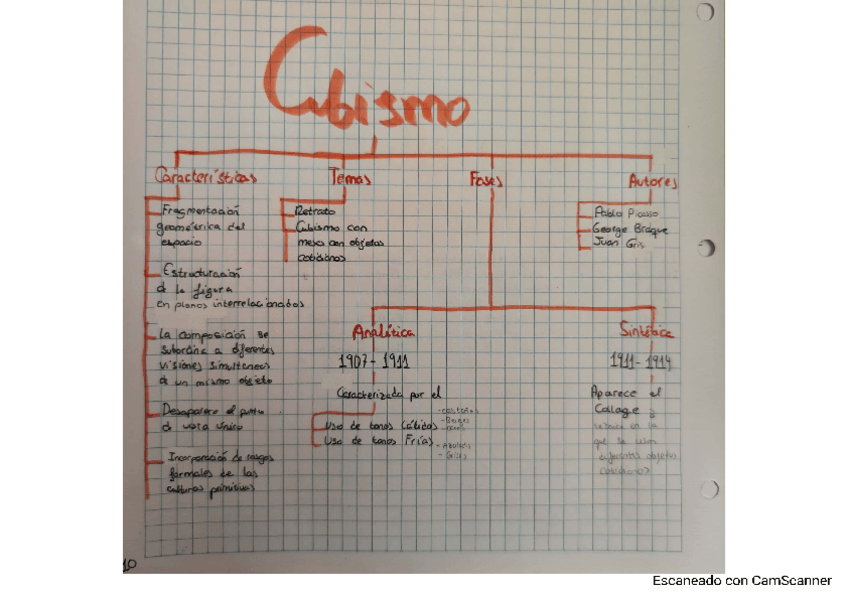 Cubismo
Características
Fragmentación
geométrica del
espacio
Estructuración
d la figura
en planos interrelacionados
La composición se
subordina a diferentes
visiones simultaneas
d un mismo objeto
Desaparece el punto
d vista único
Incorporación de rasgos
formales de las
culturas primitivas
Temas
Retrato
Cubismo con
mesa con objetos
cotidianos
Fases
Analítica
1907-1911
Caracterizada por el
Uso de tonos Cálidos
Uso de tonos Fríos
- Grises
Sintética
1911-1914
Aparece el
Collage
que se usan
diferentes objetos
cotidianos
Autores
Pablo Picasso
George Braque
Juan Gris
10
Escaneado con CamScanner